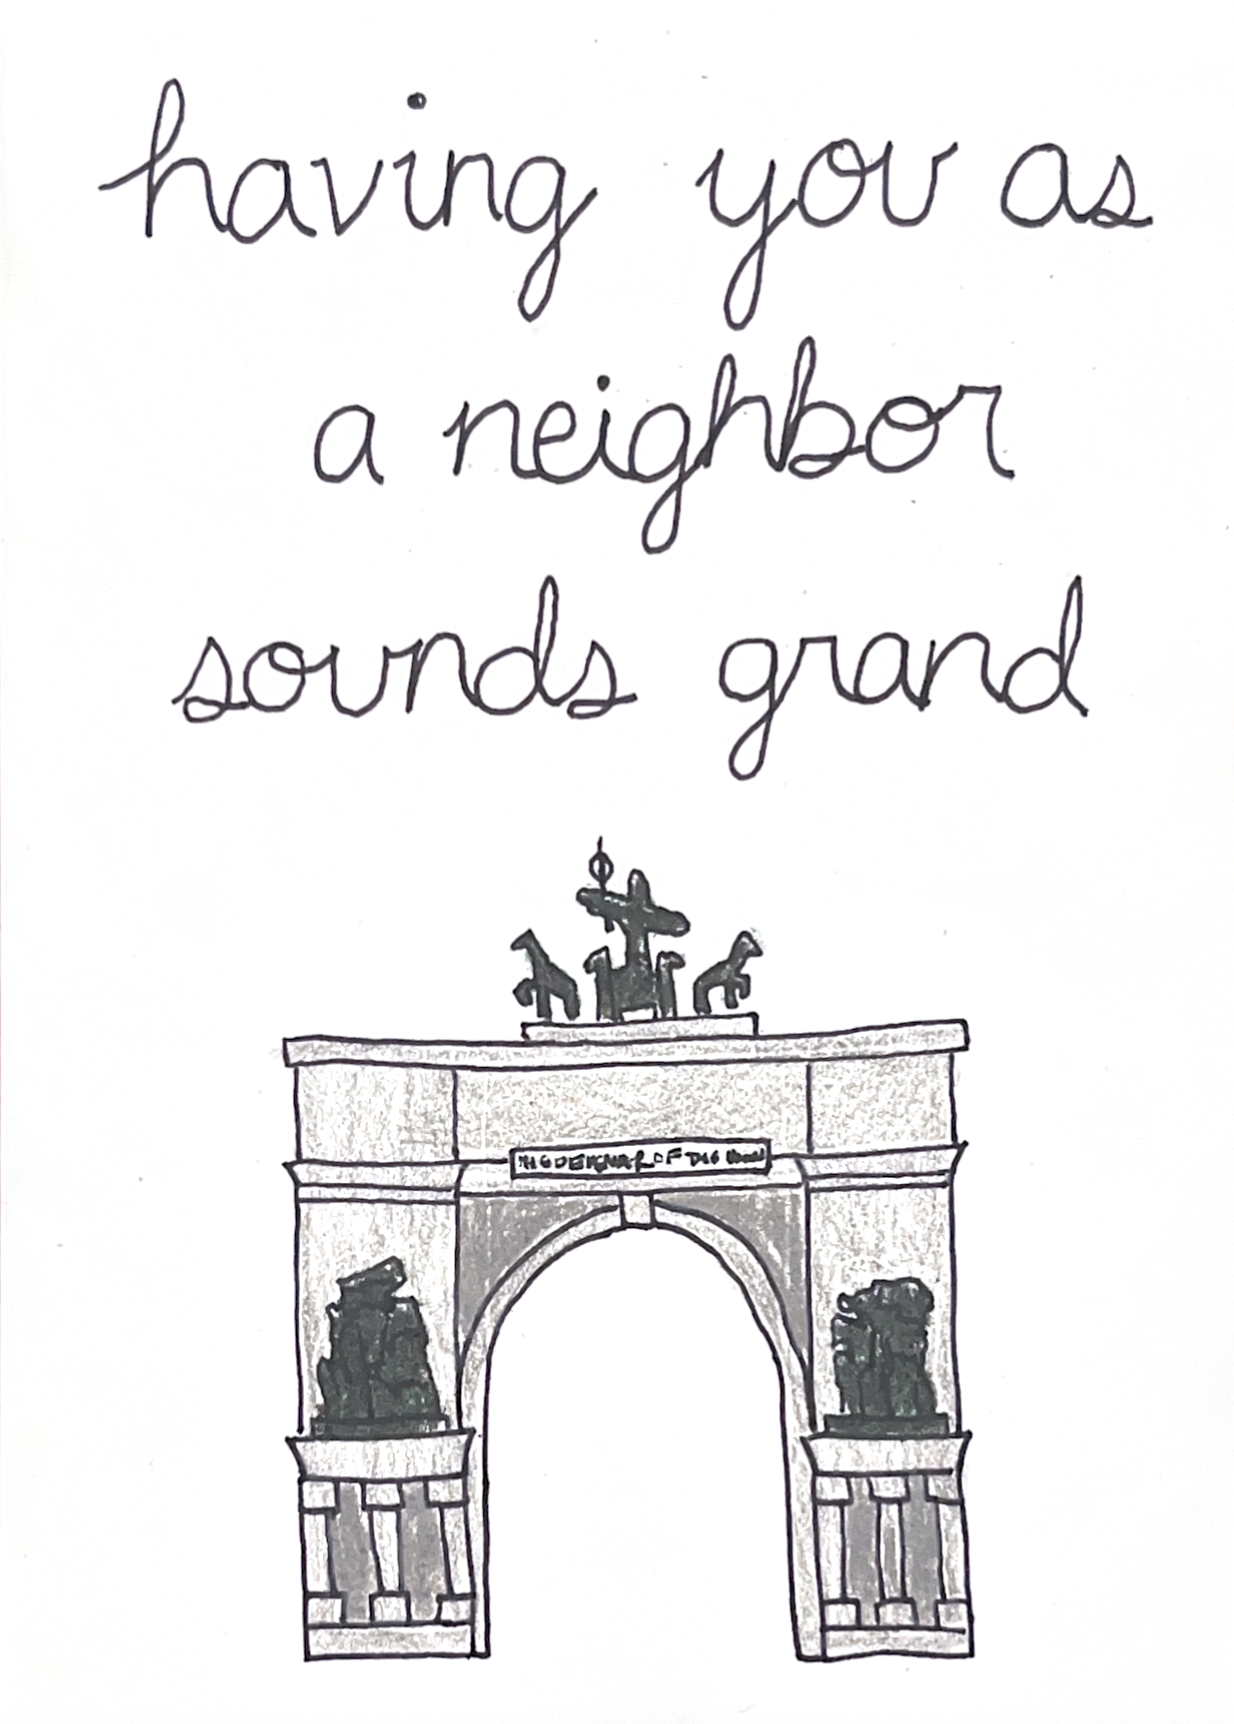 having you as
a neighbor
sounds grand